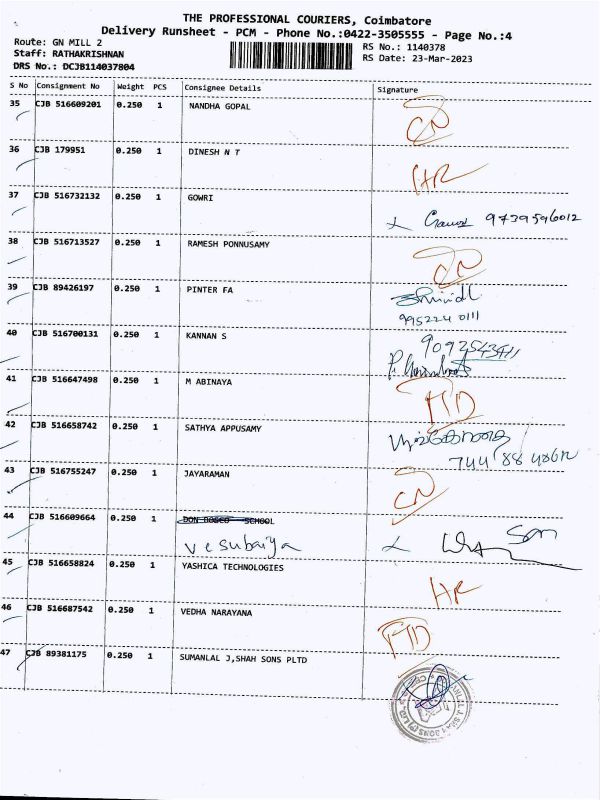 THE PROFESSIONAL COURIERS, Coimbatore
Delivery Runsheet - PCM - Phone No.:0422-3505555 - Page No.:4
Route: GN MILL 2
RS No.: 1140378
Staff: RATHAKRISHNAN
RS Date: 23-Mar-2023
DRS No.: DCJB114037804
S No Consignment No Weight PCS Consignee Details Signature
35 CJB 516609201 0.250 1 NANDHA GOPAL
CN
36 CJB 179951 0.250 1 DINESH N T
HR
37 CJB 516732132 0.250 1 GOWRI
9739596012
38 CJB 516713527 0.250 1 RAMESH PONNUSAMY
CN
39 CJB 89426197 0.250 1 PINTER FA
995224 0111
40 CJB 516700131 0.250 1 KANNAN S
41 CJB 516647498 0.250 1 M ABINAYA
FTD
42 CJB 516658742 0.250 1 SATHYA APPUSAMY
43 CJB 516755247 0.250 1 JAYARAMAN
CN
44 CJB 516609664 0.250 1 DON BOSCO SCHOOL
Vesubaiya
Son
45 CJB 516658824 0.250 1 YASHICA TECHNOLOGIES
HR
46 CJB 516687542 0.250 1 VEDHA NARAYANA
FTD
47 CJB 89381175 0.250 1 SUMANLAL J,SHAH SONS PLTD